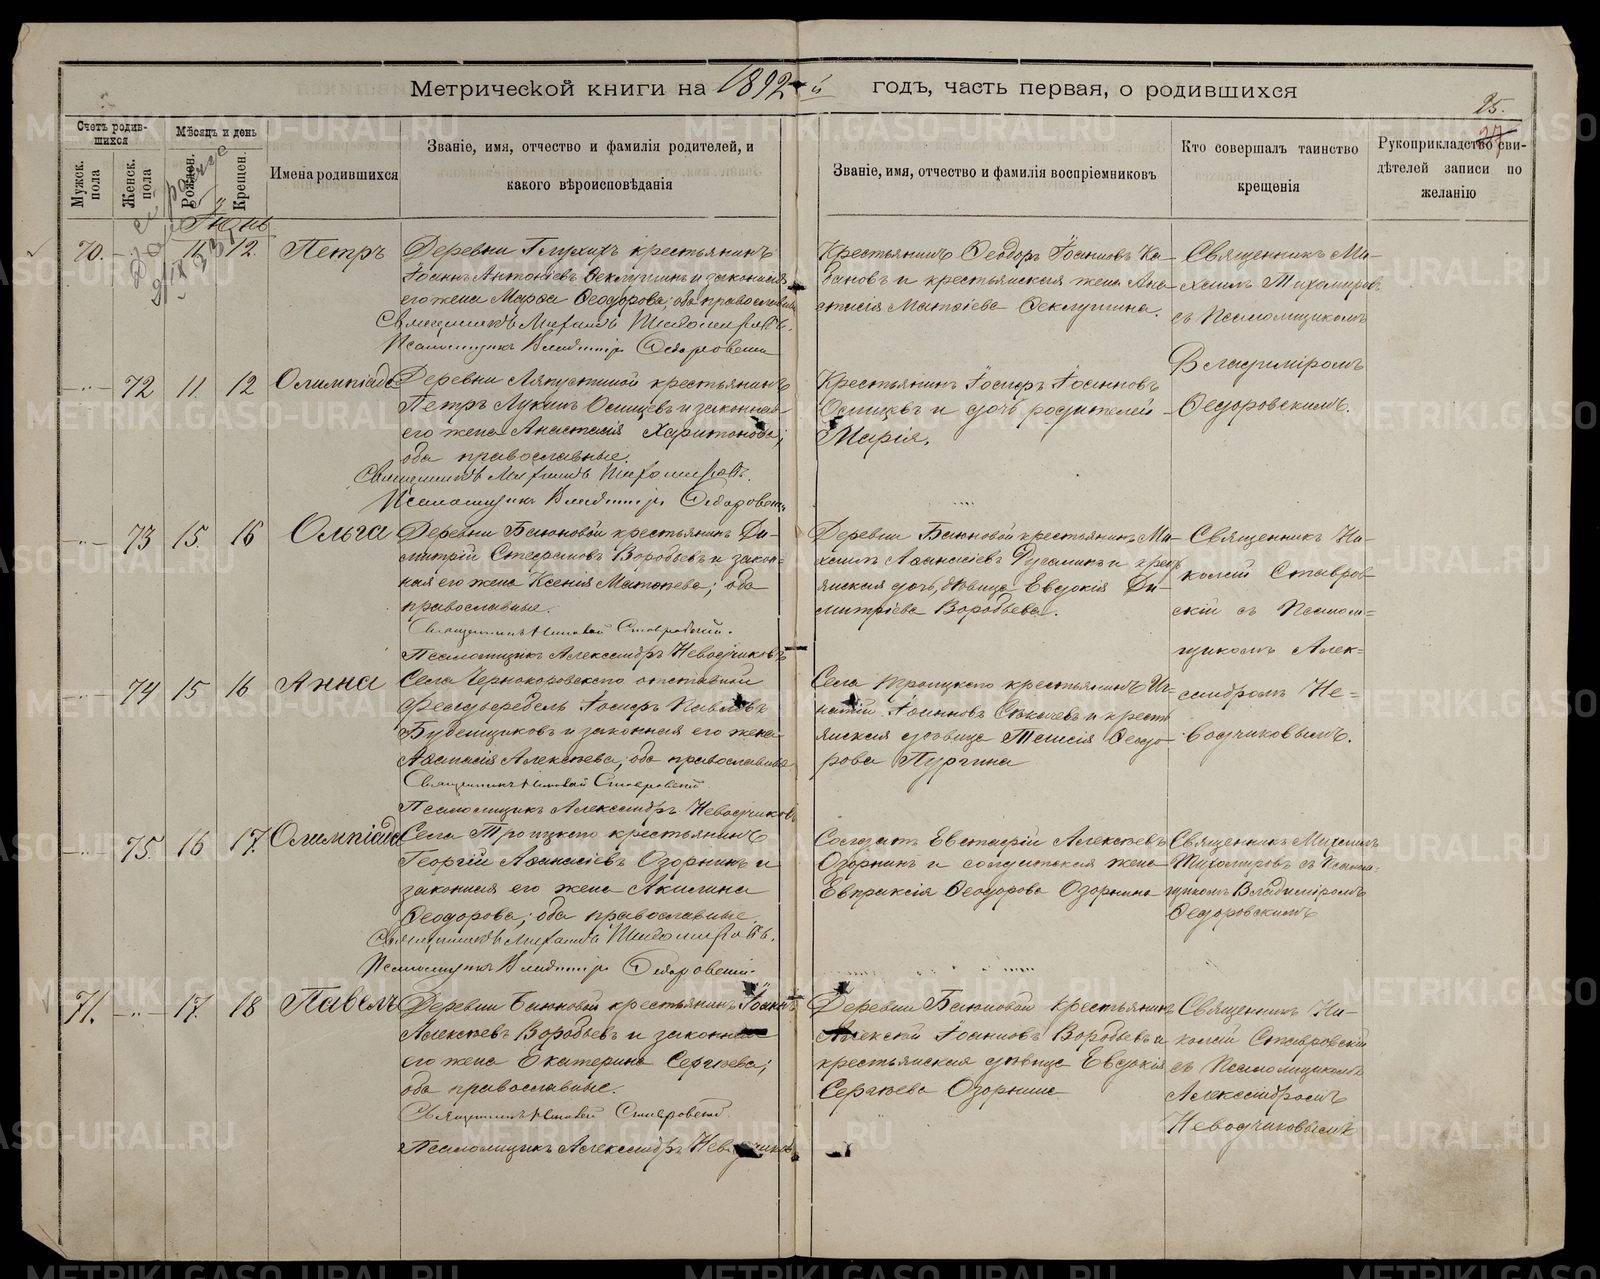 Метрической книги на 1892 й годъ, часть первая, о родившихся
25.
27
Счетъ родив-
шихся
Мѣсяцъ и день
Мужск. пола
Женск. пола
Рожден.
Крещен.
Имена родившихся
Званіе, имя, отчество и фамилія родителей, и
какого вѣроисповѣданія
Званіе, имя, отчество и фамилія воспріемниковъ
Кто совершалъ таинство
крещенія
Рукоприкладство сви-
дѣтелей записи по
желанію
Іюнь
70. 11. 12. Петръ
Деревни Глухихъ крестьянинъ
Іоаннъ Антоніевъ Феклушинъ и законная
его жена Марфа Феодорова; оба православные
Священникъ Михаилъ Тихомировъ.
Псаломщикъ Владиміръ Федоровскій
Крестьянинъ Феодоръ Іоанновъ Ка-
бановъ и крестьянская жена Ана-
стасія Матфіева Феклушина.
Священникъ Ми-
хаилъ Тихомировъ
съ Псаломщикомъ
Владиміромъ
Федоровскимъ.
72 11. 12 Олимпіада
Деревни Ляпустиной крестьянинъ
Петръ Лукинъ Осинцевъ и законная
его жена Анастасія Харитонова;
оба православные.
Священникъ Михаилъ Тихомировъ.
Псаломщикъ Владиміръ Федоровскій
Крестьянинъ Іосифъ Іоанновъ
Осинцевъ и дочь родителей
Марія.
73 15. 16 Ольга
Деревни Баюновой крестьянинъ Ди-
митрій Стефановъ Воробьевъ и закон-
ная его жена Ксенія Матфіева; оба
православные.
Священникъ Николай Ставровскій.
Псаломщикъ Александръ Неводчиковъ
Деревни Баюновой крестьянинъ Ми-
хаилъ Афанасіевъ и крест
янская дочь, дѣвица Евдокія Ди-
митріева Воробьева.
Священникъ Ни-
колай Ставров-
скій съ Псалом-
щикомъ Алек-
сандромъ Не-
водчиковымъ.
74 15 16 Анна
Села Чернокоровскаго отставной
Фельдфебель Іосифъ Павловъ
Буденщиковъ и законная его жена
Афанасія Алексѣева; оба православные
Священникъ Николай Ставровскій
Псаломщикъ Александръ Неводчиковъ
Села Троицкаго крестьянинъ Иг-
натій Іоанновъ и крестья
янская дѣвица Таисія Феодо-
рова Пургина
75. 16 17. Олимпіада
Села Троицкаго крестьянинъ
Георгій Афанасіевъ Озорнинъ и
законная его жена Акилина
Феодорова; оба православные.
Священникъ Михаилъ Тихомировъ.
Псаломщикъ Владиміръ Федоровскій.
Солдатъ Евстафій Алексѣевъ
Озорнинъ и солдатская жена
Евпраксія Феодорова Озорнина
Священникъ Михаилъ
Тихомировъ съ Псалом-
щикомъ Владиміромъ
Федоровскимъ
71. 17. 18 Павелъ
Деревни Баюновой крестьянинъ Іоаннъ
Алексѣевъ Воробьевъ и законная
его жена Екатерина Сергѣева;
оба православные.
Священникъ Николай Ставровскій
Псаломщикъ Александръ Неводчиковъ
Деревни Баюновой крестьянинъ
Алексѣй Іоанновъ Воробьевъ и
крестьянская дѣвица Евдокія
Сергѣева Озорнина
Священникъ Ни-
колай Ставровскій
съ Псаломщикомъ
Александромъ
Неводчиковымъ
METRIKI.GASO-URAL.RU